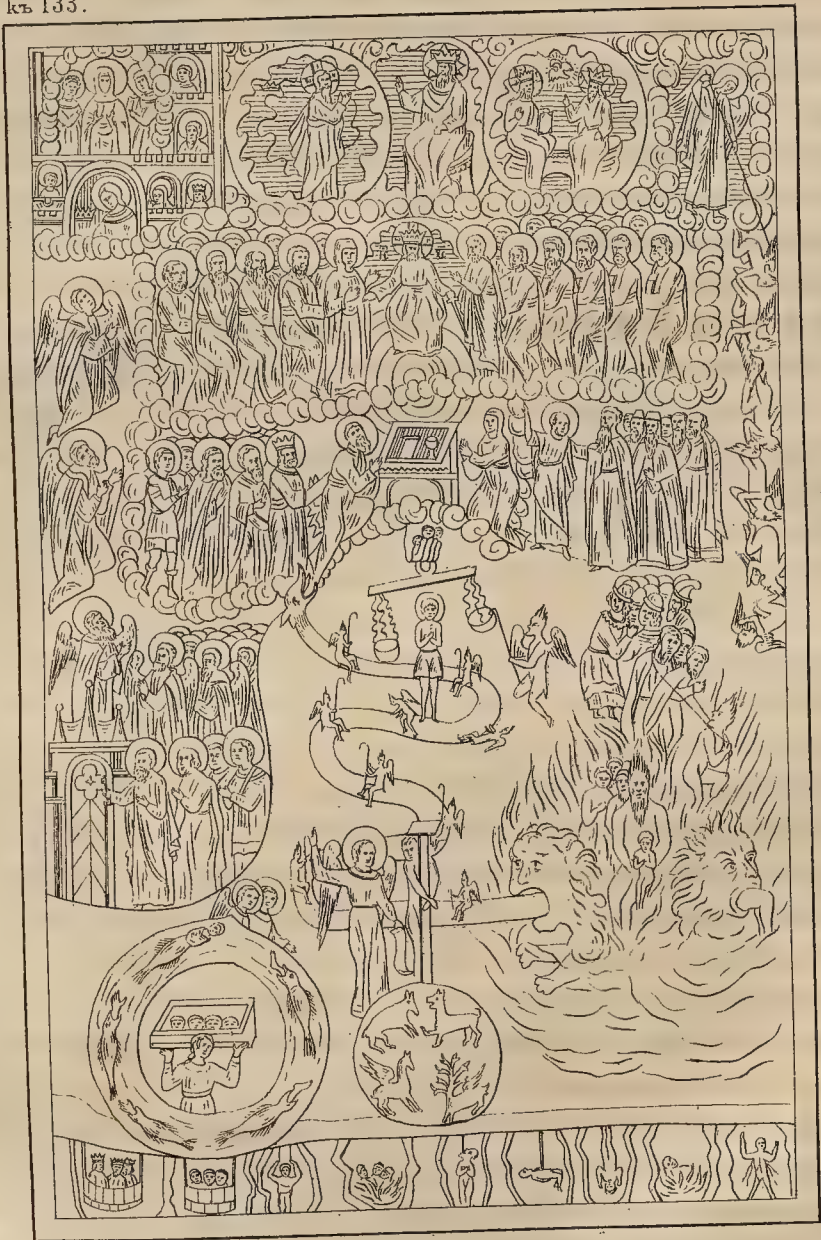 къ 133.